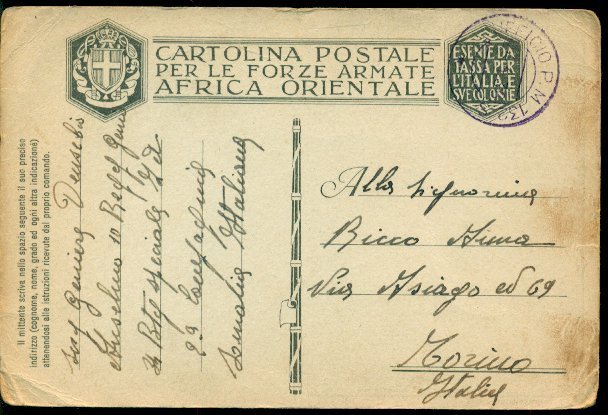 CARTOLINA POSTALE
PER LE FORZE ARMATE
AFRICA ORIENTALE
FERT
ESENTE DA
TASSA PER
L'ITALIA E
SVE COLONIE
UFFICIO P. M. 132
Il mittente scriva nello spazio seguente il suo preciso
indirizzo (cognome, nome, grado ed ogni altra indicazione)
attenendosi alle istruzioni ricevute dal proprio comando.
Anselmo 10
Btg speciale
2a Compagnia
Somalia Italiana
Alla Signorina
Ricco Anna
Via Asiago ed 69
Torino
Italia